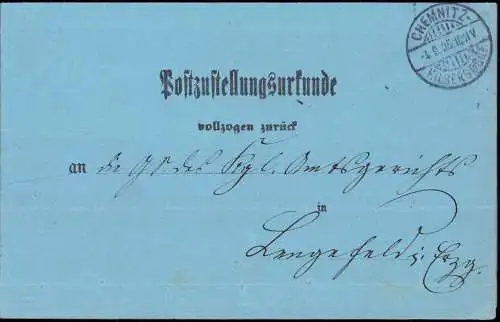 CHEMNITZ-
Postzustellungsurkunde
vollzogen zurück
an die GS des Kgl. Amtsgerichts
in
Lengefeld i. Erzg.